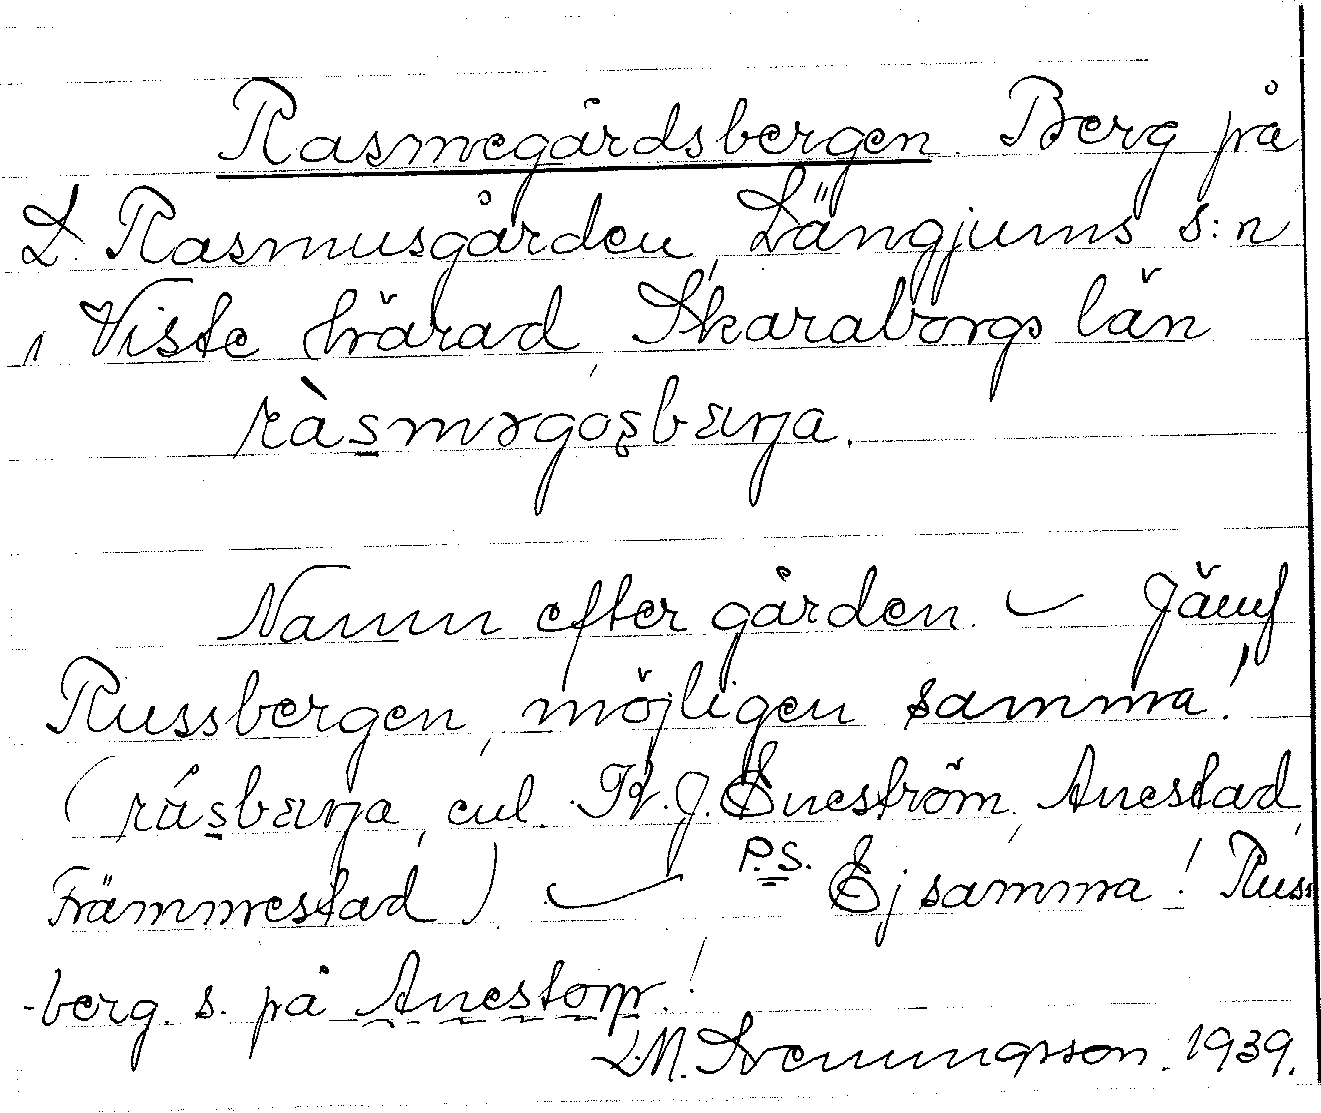 Rasmegårdsbergen. Berg på
L. Rasmusgården, Längjums s:n
, Viste härad, Skaraborgs län
ràsməgoʂbærja.
Namn efter gården. – Jämf
Russbergen, möjligen samma!
(rásbærja, enl. K. J. Eneström, Anestad,
Främmestad) – P.S. Ej samma! Russ
-berg. s. på Anestorp!
L.M. Svenungsson. 1939.